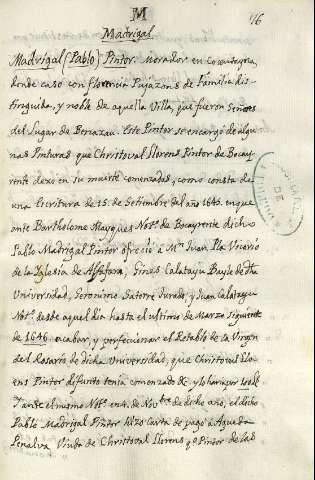 M
176
Madrigal
Madrigal (Pablo) Pintor. Morador en Cocentayna,
donde casó con Florencia Pujazons de Familia dis-
tinguida, y noble de aquella Villa, que fueron Señores
del Lugar de Beniazau. Este Pintor se encargó de algu-
nas Pinturas que Christoval Llorens Pintor de Bocay-
rente dexo en su muerte comenzadas, como consta de
una Escritura de 15. de Setiembre del año 1645. en que
ante Bartholome Mayques Not.º de Bocayrente dicho
Pablo Madrigal Pintor ofreció a M.n Juan Pla Vicario
de la Yglesia de Alfafara; Gines Calatayu Bayle de dha
Universidad, Geronimo Satorre Jurado, y Juan Calatayu
Not.º desde aquel dia hasta el ultimo de Marzo siguiente
de 1646 acabar, y perfeccionar el Retablo de la Virgen
del Rosario de dicha Universidad, que Christoval Llo-
rens Pintor difunto tenia comenzado &.
Y ante el mismo Not.º en 4. de Nov.bre de dicho año, el dicho
Pablo Madrigal Pintor hizo Carta de pago a Agueda
Penalva Viuda de Christoval Llorens q.º Pintor de las